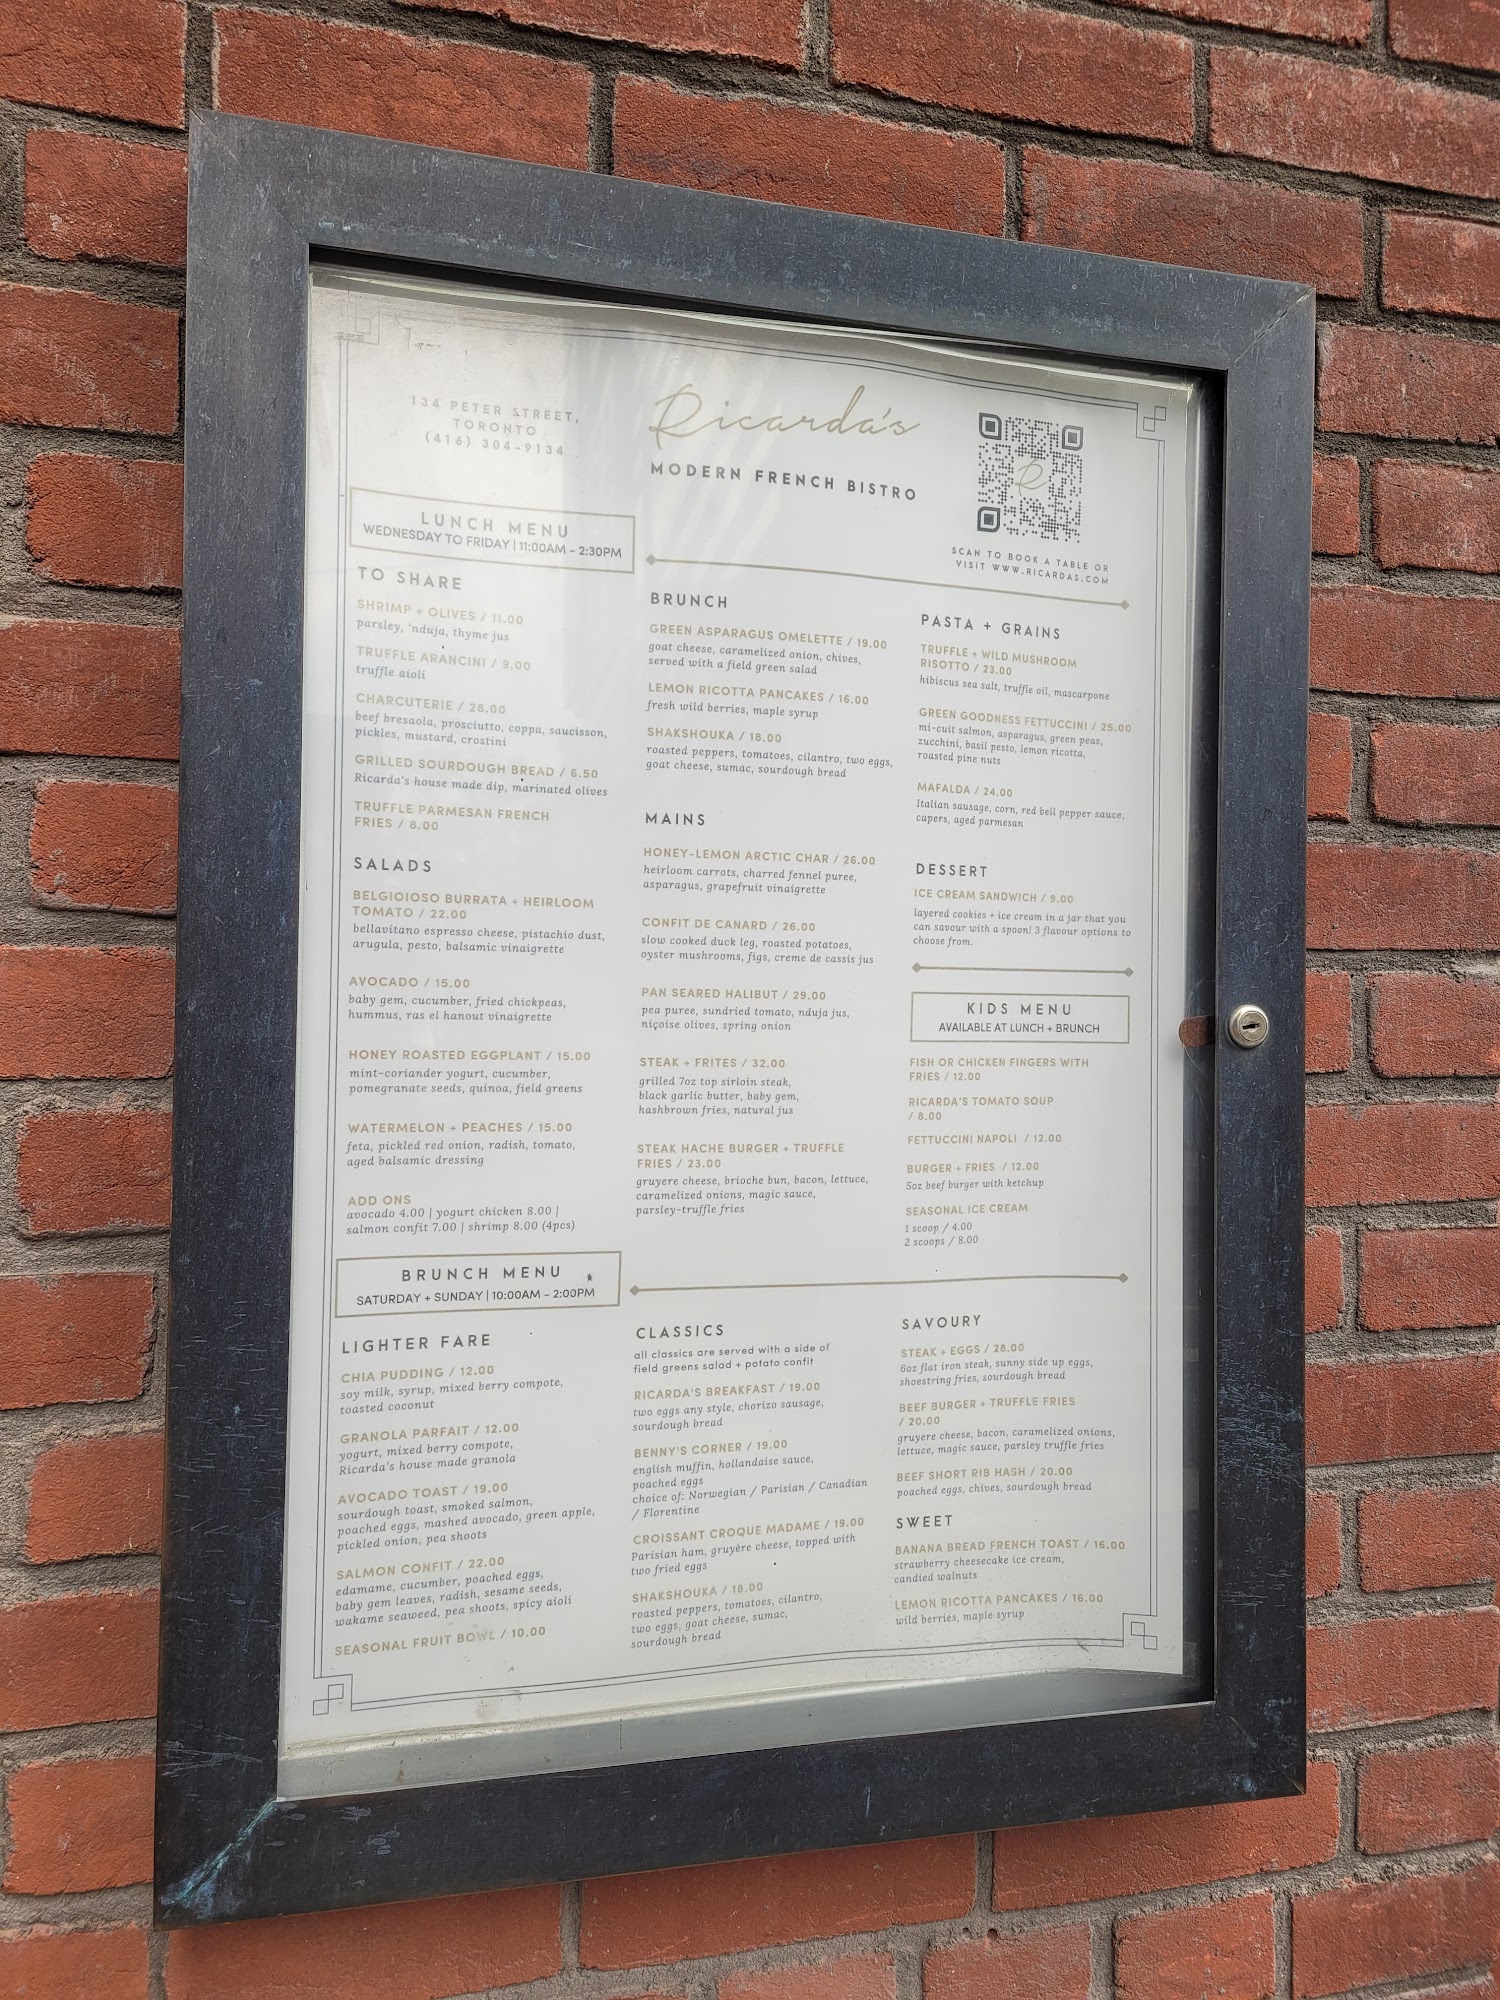 134 PETER STREET,
TORONTO
(416) 304-9134
Ricarda's
MODERN FRENCH BISTRO
SCAN TO BOOK A TABLE OR
VISIT WWW.RICARDAS.COM
LUNCH MENU
WEDNESDAY TO FRIDAY | 11:00AM - 2:30PM
TO SHARE
SHRIMP + OLIVES / 11.00
parsley, 'nduja, thyme jus
TRUFFLE ARANCINI / 9.00
truffle aioli
CHARCUTERIE / 28.00
beef bresaola, prosciutto, coppa, saucisson,
pickles, mustard, crostini
GRILLED SOURDOUGH BREAD / 6.50
Ricarda's house made dip, marinated olives
TRUFFLE PARMESAN FRENCH
FRIES / 8.00
SALADS
BELGIOIOSO BURRATA + HEIRLOOM
TOMATO / 22.00
bellavitano espresso cheese, pistachio dust,
arugula, pesto, balsamic vinaigrette
AVOCADO / 15.00
baby gem, cucumber, fried chickpeas,
hummus, ras el hanout vinaigrette
HONEY ROASTED EGGPLANT / 15.00
mint-coriander yogurt, cucumber,
pomegranate seeds, quinoa, field greens
WATERMELON + PEACHES / 15.00
feta, pickled red onion, radish, tomato,
aged balsamic dressing
ADD ONS
avocado 4.00 | yogurt chicken 8.00 |
salmon confit 7.00 | shrimp 8.00 (4pcs)
BRUNCH
GREEN ASPARAGUS OMELETTE / 19.00
goat cheese, caramelized onion, chives,
served with a field green salad
LEMON RICOTTA PANCAKES / 16.00
fresh wild berries, maple syrup
SHAKSHOUKA / 18.00
roasted peppers, tomatoes, cilantro, two eggs,
goat cheese, sumac, sourdough bread
MAINS
HONEY-LEMON ARCTIC CHAR / 26.00
heirloom carrots, charred fennel puree,
asparagus, grapefruit vinaigrette
CONFIT DE CANARD / 26.00
slow cooked duck leg, roasted potatoes,
oyster mushrooms, figs, creme de cassis jus
PAN SEARED HALIBUT / 29.00
pea puree, sundried tomato, nduja jus,
niçoise olives, spring onion
STEAK + FRITES / 32.00
grilled 7oz top sirloin steak,
black garlic butter, baby gem,
hashbrown fries, natural jus
STEAK HACHE BURGER + TRUFFLE
FRIES / 23.00
gruyere cheese, brioche bun, bacon, lettuce,
caramelized onions, magic sauce,
parsley-truffle fries
PASTA + GRAINS
TRUFFLE + WILD MUSHROOM
RISOTTO / 23.00
hibiscus sea salt, truffle oil, mascarpone
GREEN GOODNESS FETTUCCINI / 25.00
mi-cuit salmon, asparagus, green peas,
zucchini, basil pesto, lemon ricotta,
roasted pine nuts
MAFALDA / 24.00
Italian sausage, corn, red bell pepper sauce,
capers, aged parmesan
DESSERT
ICE CREAM SANDWICH / 9.00
layered cookies + ice cream in a jar that you
can savour with a spoon! 3 flavour options to
choose from.
KIDS MENU
AVAILABLE AT LUNCH + BRUNCH
FISH OR CHICKEN FINGERS WITH
FRIES / 12.00
RICARDA'S TOMATO SOUP
/ 8.00
FETTUCCINI NAPOLI / 12.00
BURGER + FRIES / 12.00
5oz beef burger with ketchup
SEASONAL ICE CREAM
1 scoop / 4.00
2 scoops / 8.00
BRUNCH MENU
SATURDAY + SUNDAY | 10:00AM - 2:00PM
LIGHTER FARE
CHIA PUDDING / 12.00
soy milk, syrup, mixed berry compote,
toasted coconut
GRANOLA PARFAIT / 12.00
yogurt, mixed berry compote,
Ricarda's house made granola
AVOCADO TOAST / 19.00
sourdough toast, smoked salmon,
poached eggs, mashed avocado, green apple,
pickled onion, pea shoots
SALMON CONFIT / 22.00
edamame, cucumber, poached eggs,
baby gem leaves, radish, sesame seeds,
wakame seaweed, pea shoots, spicy aioli
SEASONAL FRUIT BOWL / 10.00
CLASSICS
all classics are served with a side of
field greens salad + potato confit
RICARDA'S BREAKFAST / 19.00
two eggs any style, chorizo sausage,
sourdough bread
BENNY'S CORNER / 19.00
english muffin, hollandaise sauce,
poached eggs
choice of: Norwegian / Parisian / Canadian
/ Florentine
CROISSANT CROQUE MADAME / 19.00
Parisian ham, gruyère cheese, topped with
two fried eggs
SHAKSHOUKA / 18.00
roasted peppers, tomatoes, cilantro,
two eggs, goat cheese, sumac,
sourdough bread
SAVOURY
STEAK + EGGS / 28.00
6oz flat iron steak, sunny side up eggs,
shoestring fries, sourdough bread
BEEF BURGER + TRUFFLE FRIES
/ 20.00
gruyere cheese, bacon, caramelized onions,
lettuce, magic sauce, parsley truffle fries
BEEF SHORT RIB HASH / 20.00
poached eggs, chives, sourdough bread
SWEET
BANANA BREAD FRENCH TOAST / 16.00
strawberry cheesecake ice cream,
candied walnuts
LEMON RICOTTA PANCAKES / 16.00
wild berries, maple syrup